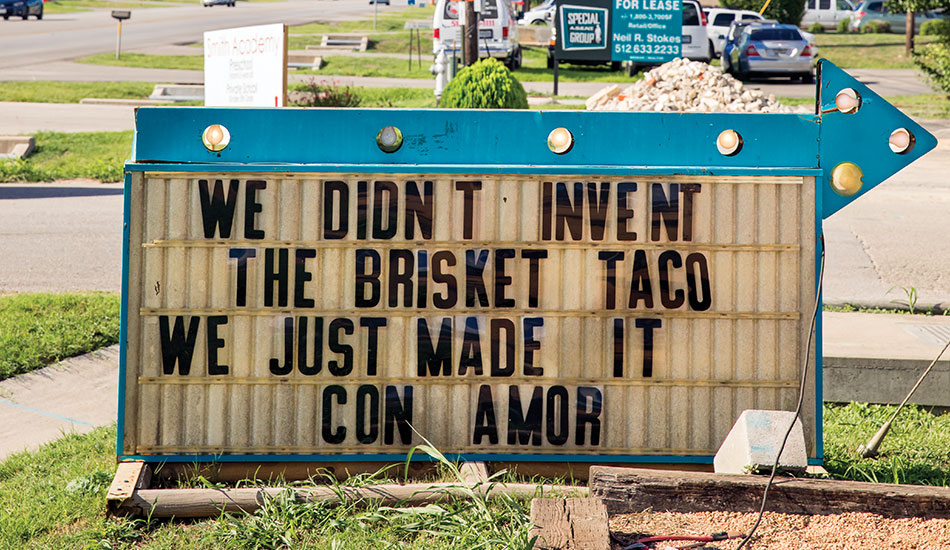 FOR LEASE
+/- 1,800-3,700 SF
Retail/Office
Neil R. Stokes
512.633.2233
SPECIAL
AGENT
GROUP
Smith Academy
Preschool
Private School
WE DIDN T INVENT
THE BRISKET TACO
WE JUST MADE IT
CON AMOR